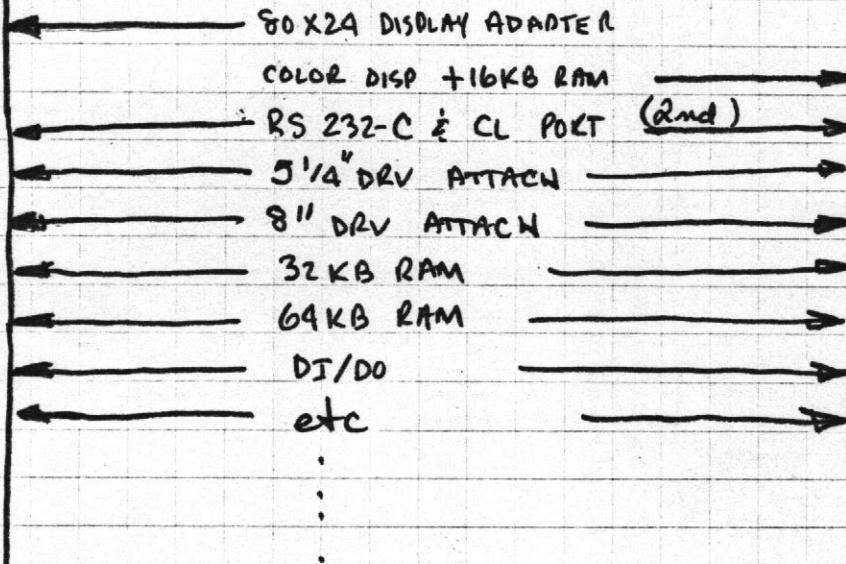 80 X 24 DISPLAY ADAPTER
COLOR DISP +16KB RAM
RS 232-C & CL PORT (2nd)
5 1/4" DRV ATTACH
8" DRV ATTACH
32 KB RAM
64 KB RAM
DI/DO
etc